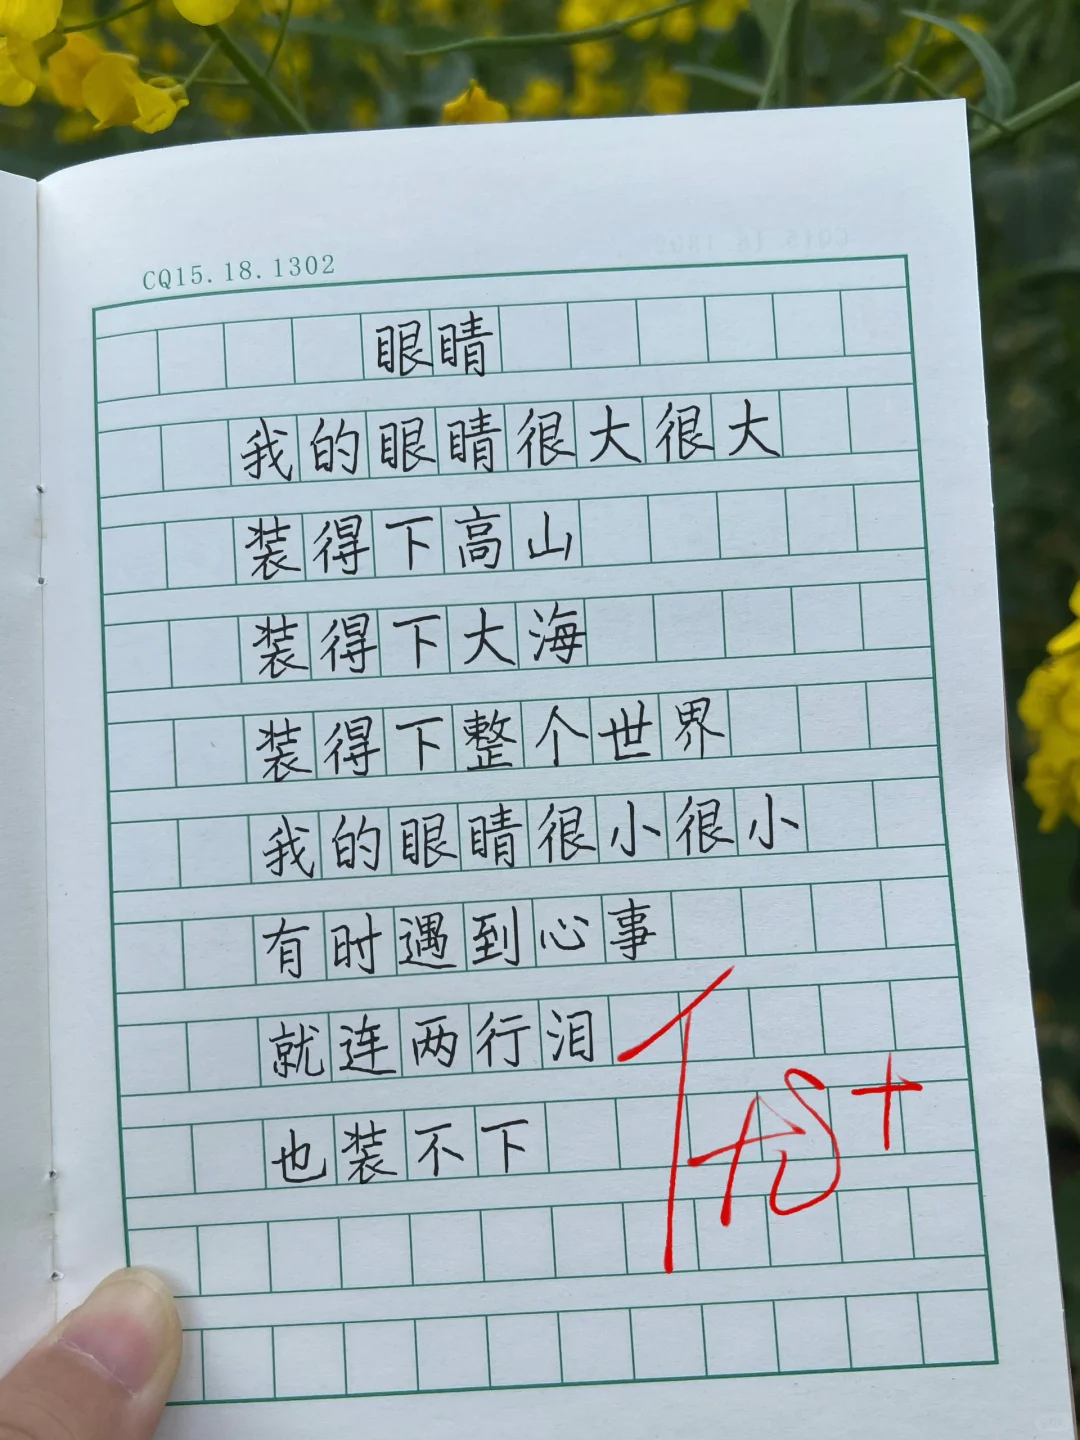 CQ15.18.1302
眼睛
我的眼睛很大很大
装得下高山
装得下大海
装得下整个世界
我的眼睛很小很小
有时遇到心事
就连两行泪
也装不下